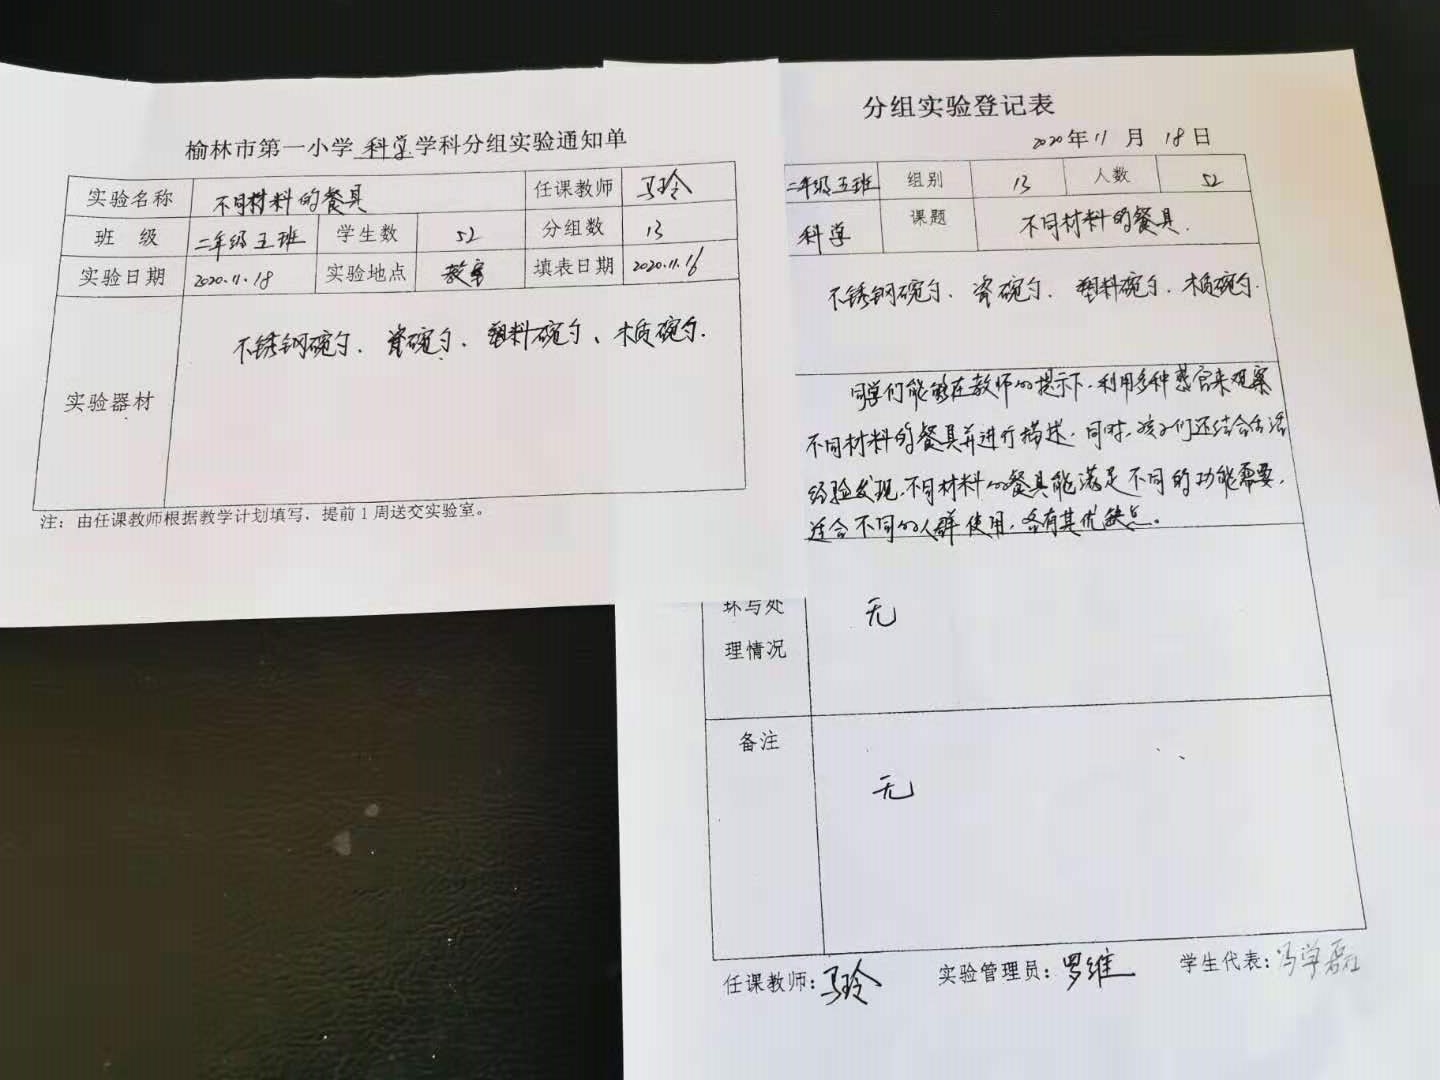 榆林市第一小学 科学 学科分组实验通知单
实验名称 不同材料的餐具 任课教师 马玲
班 级 二年级五班 学生数 52 分组数 13
实验日期 2020.11.18 实验地点 教室 填表日期 2020.11.16
实验器材 不锈钢碗勺、瓷碗勺、塑料碗勺、木质碗勺.
注：由任课教师根据教学计划填写，提前1周送交实验室。
分组实验登记表
2020年11月18日
二年级五班 组别 13 人数 52
科学 课题 不同材料的餐具.
不锈钢碗勺、瓷碗勺、塑料碗勺、木质碗勺.
同学们能够在教师的提示下，利用多种感官来观察
不同材料的餐具并进行描述，同时，孩子们还结合生活
经验发现，不同材料的餐具能满足不同的功能需要，
适合不同的人群使用，各有其优缺点。
坏与处
理情况
无
备注
无
任课教师：马玲 实验管理员：罗维 学生代表：冯学磊